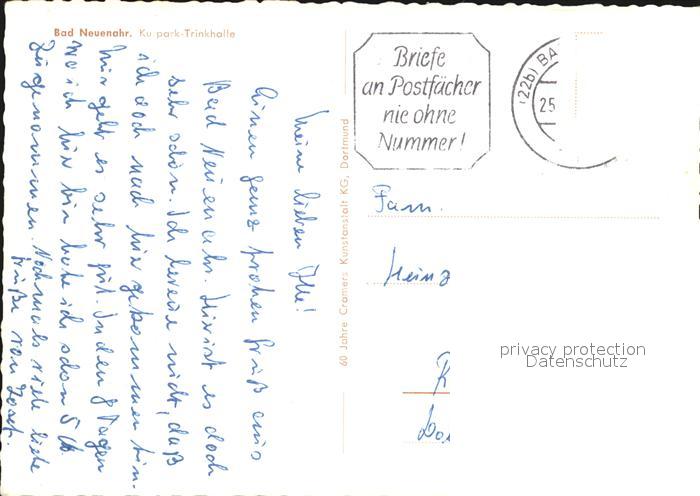 Bad Neuenahr. Ku park-Trinkhalle
Meine lieben Alle!
Einen ganz frohen Gruß aus
Bad Neuenahr. Hier ist es doch
sehr schön. Ich bereue nicht, daß
ich doch noch hier gekommen bin.
Mir geht es sehr gut. In den 8 Tagen
wo ich hier bin habe ich schon 5 Pf.
zugenommen. Nochmals viele liebe
Grüße von Josef.
60 Jahre Cramers Kunstanstalt KG, Dortmund
Briefe
an Postfächer
nie ohne
Nummer!
(22b) BA
25
Fam.
Heinz
privacy protection
Datenschutz